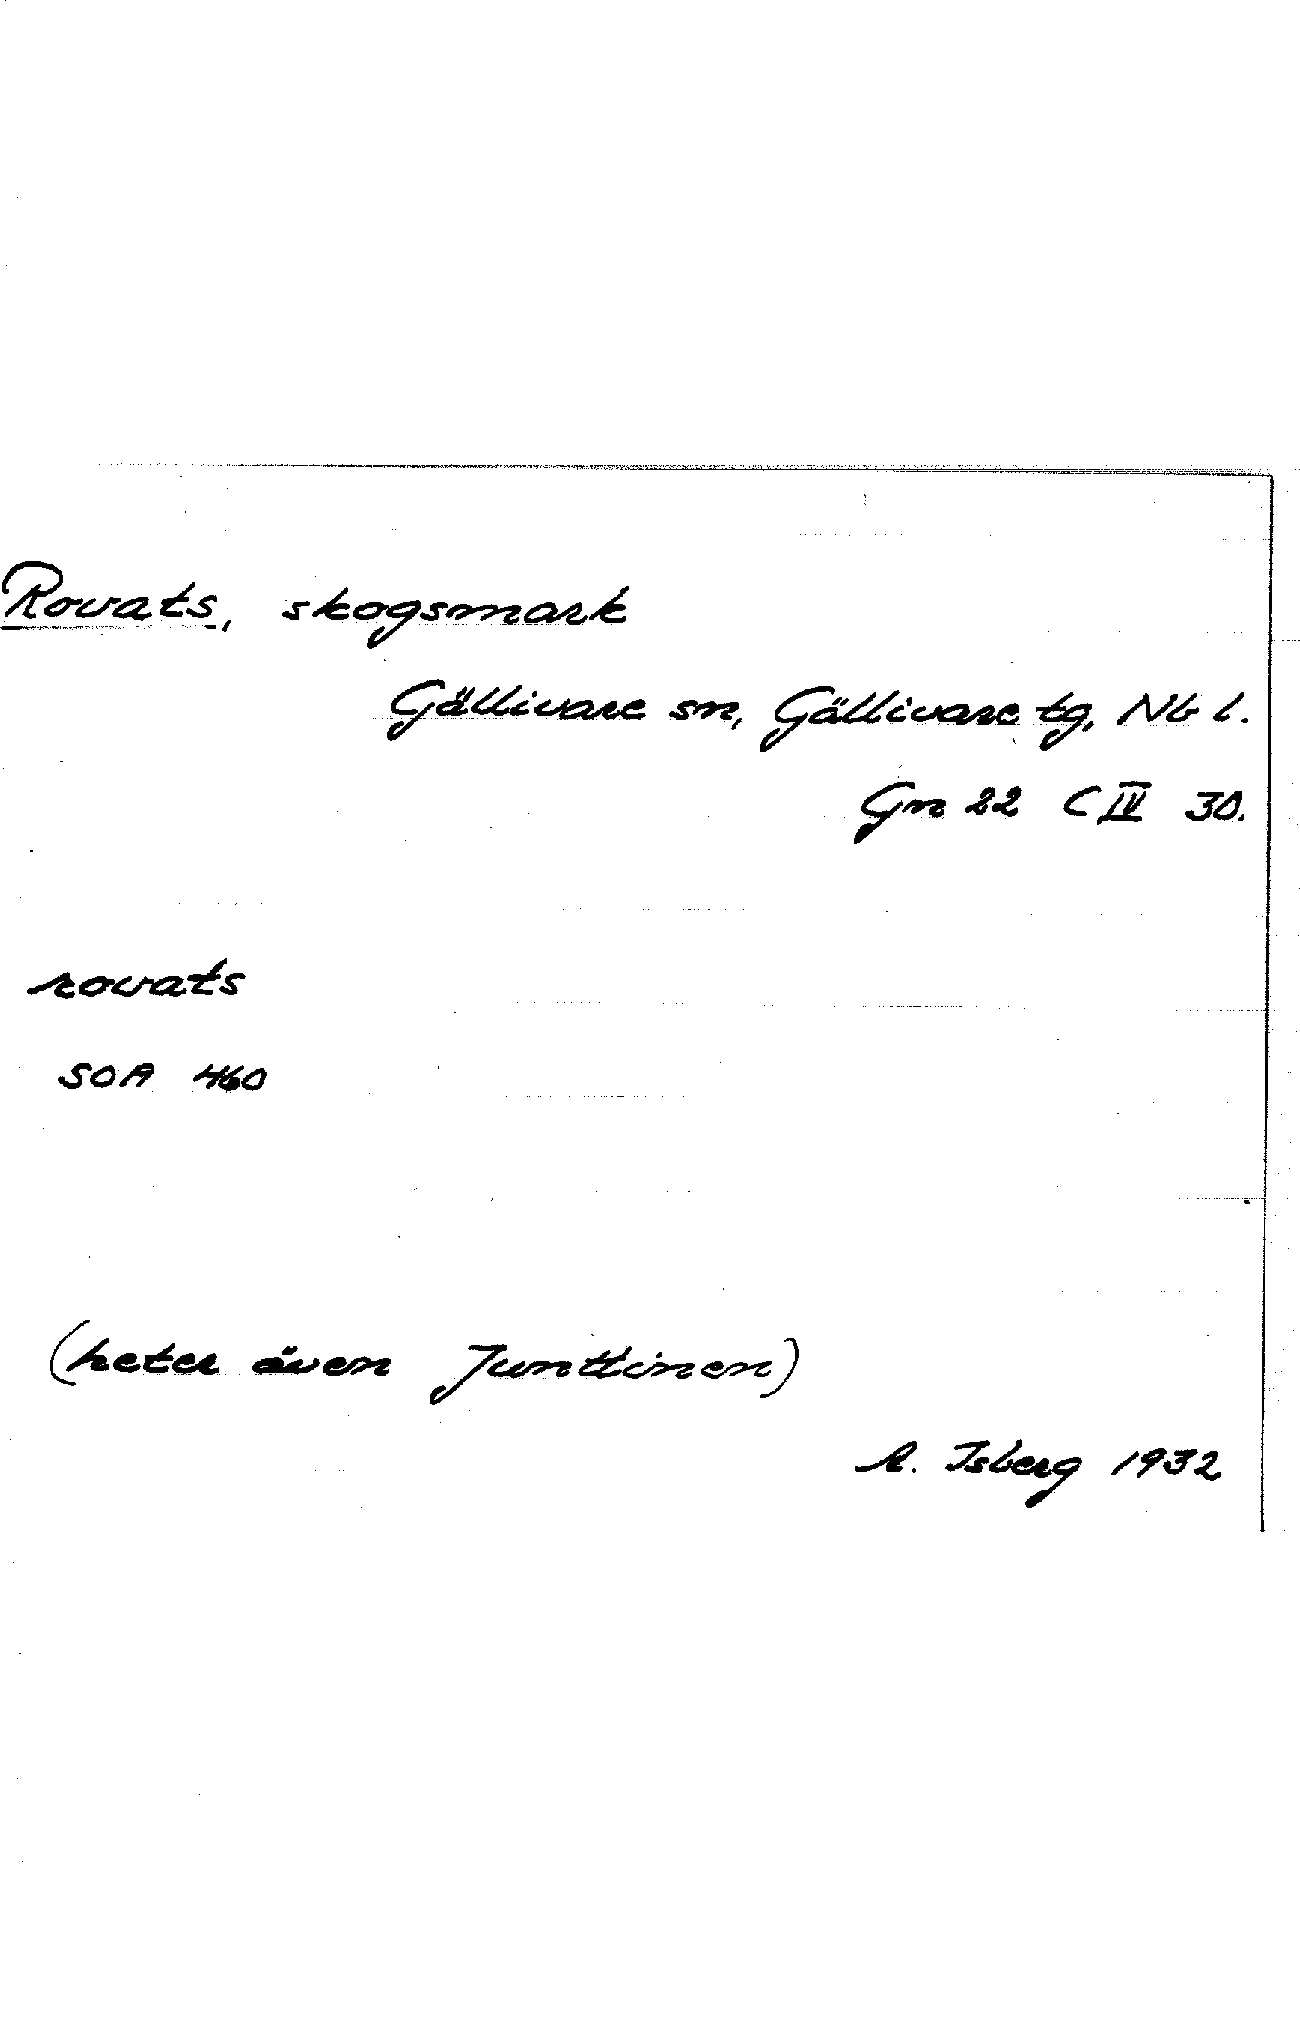 Rovats, skogsmark
Gällivare sn, Gällivare tg, Nb l.
Gn 22 C IV 30.
rovats
SOA 460
(heter även Junttinen)
A. Isberg 1932